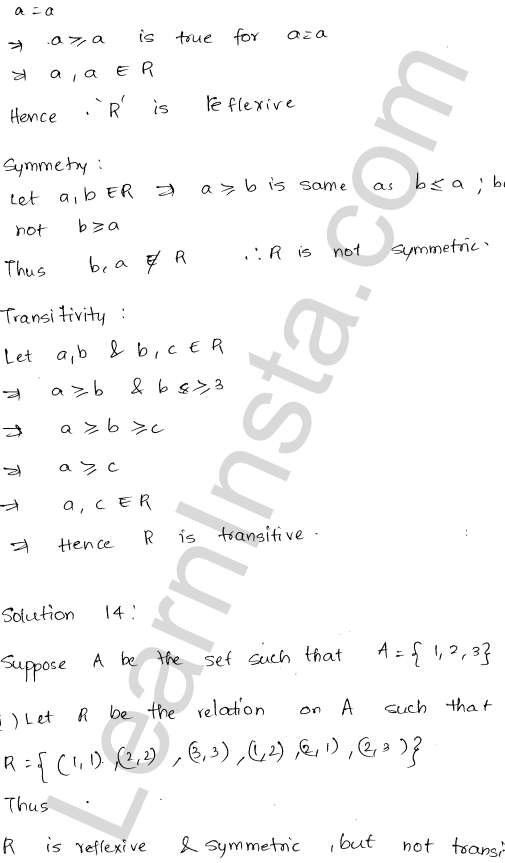 a = a
⇒ a ⩾ a is true for a = a
⇒ a, a ∈ R
Hence 'R' is Reflexive
Symmetry :
Let a, b ∈ R ⇒ a ⩾ b is same as b ≤ a ; b
not b ⩾ a
Thus b, a ∉ R ∴ R is not symmetric.
Transitivity :
Let a, b & b, c ∈ R
⇒ a ⩾ b & b ⩾ 3
⇒ a ⩾ b ⩾ c
⇒ a ⩾ c
⇒ a, c ∈ R
⇒ Hence R is transitive.
Solution 14 :
Suppose A be the set such that A = { 1, 2, 3 }
i ) Let R be the relation on A such that
R = { (1,1), (2,2), (3,3), (1,2), (2,1), (2,3) }
Thus
R is reflexive & symmetric , but not transi
LearnInsta.com